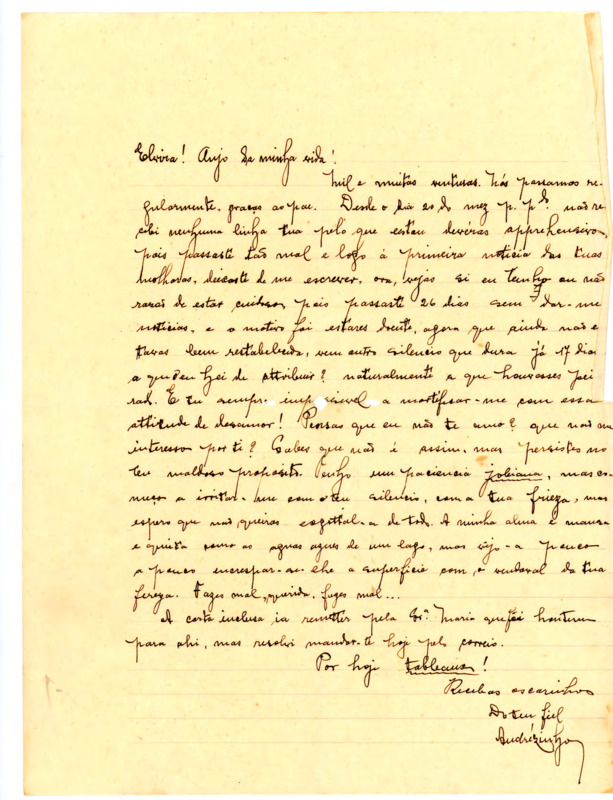 Elvira! Anjo da minha vida!
Mil e muitas venturas. Nós passamos re-
gularmente, graças ao pae. Desde o dia 20 do mez p. pdo. não re-
cebi nenhuma linha tua pelo que estou devéras apprehensivo,
pois passaste tão mal e logo á primeira noticia das tuas
melhoras, deixaste de me escrever, ora, vejas si eu tenho ou não
razão de estar cuidoso, pois passaste 26 dias sem dar-me
noticias, e o motivo foi estares doente, agora que ainda não e
tavas bem restabelecida, vem outro silencio que dura já 17 dias
a que hei de attribuir? naturalmente a que houvesses pei
rado. E tu sempre impassivel a mortificar-me com essa
attitude de desamor! Pensas que eu não te amo? que não me
interesso por ti? Sabes que não é assim, mas persistes no
teu maldoso proposito. Tenho uma paciencia jobiana, mas co-
meço a irritar-me com o teu silencio, com a tua frieza, mas
espero que não queiras exgottal-a de todo. A minha alma é mansa
e quieta como as aguas azues de um lago, mas vejo-a pouco
a pouco encrespar-se-lhe a superficie com o vendaval da tua
fereza. Fazes mal, querida, fazes mal...
A carta inclusa ia remetter pela Sra. Maria que foi hontem
para ahi, mas resolvi mandar-te hoje pelo correio.
Por hoje tableaux!
Recebas os carinhos
Do teu fiel
Andrézinho